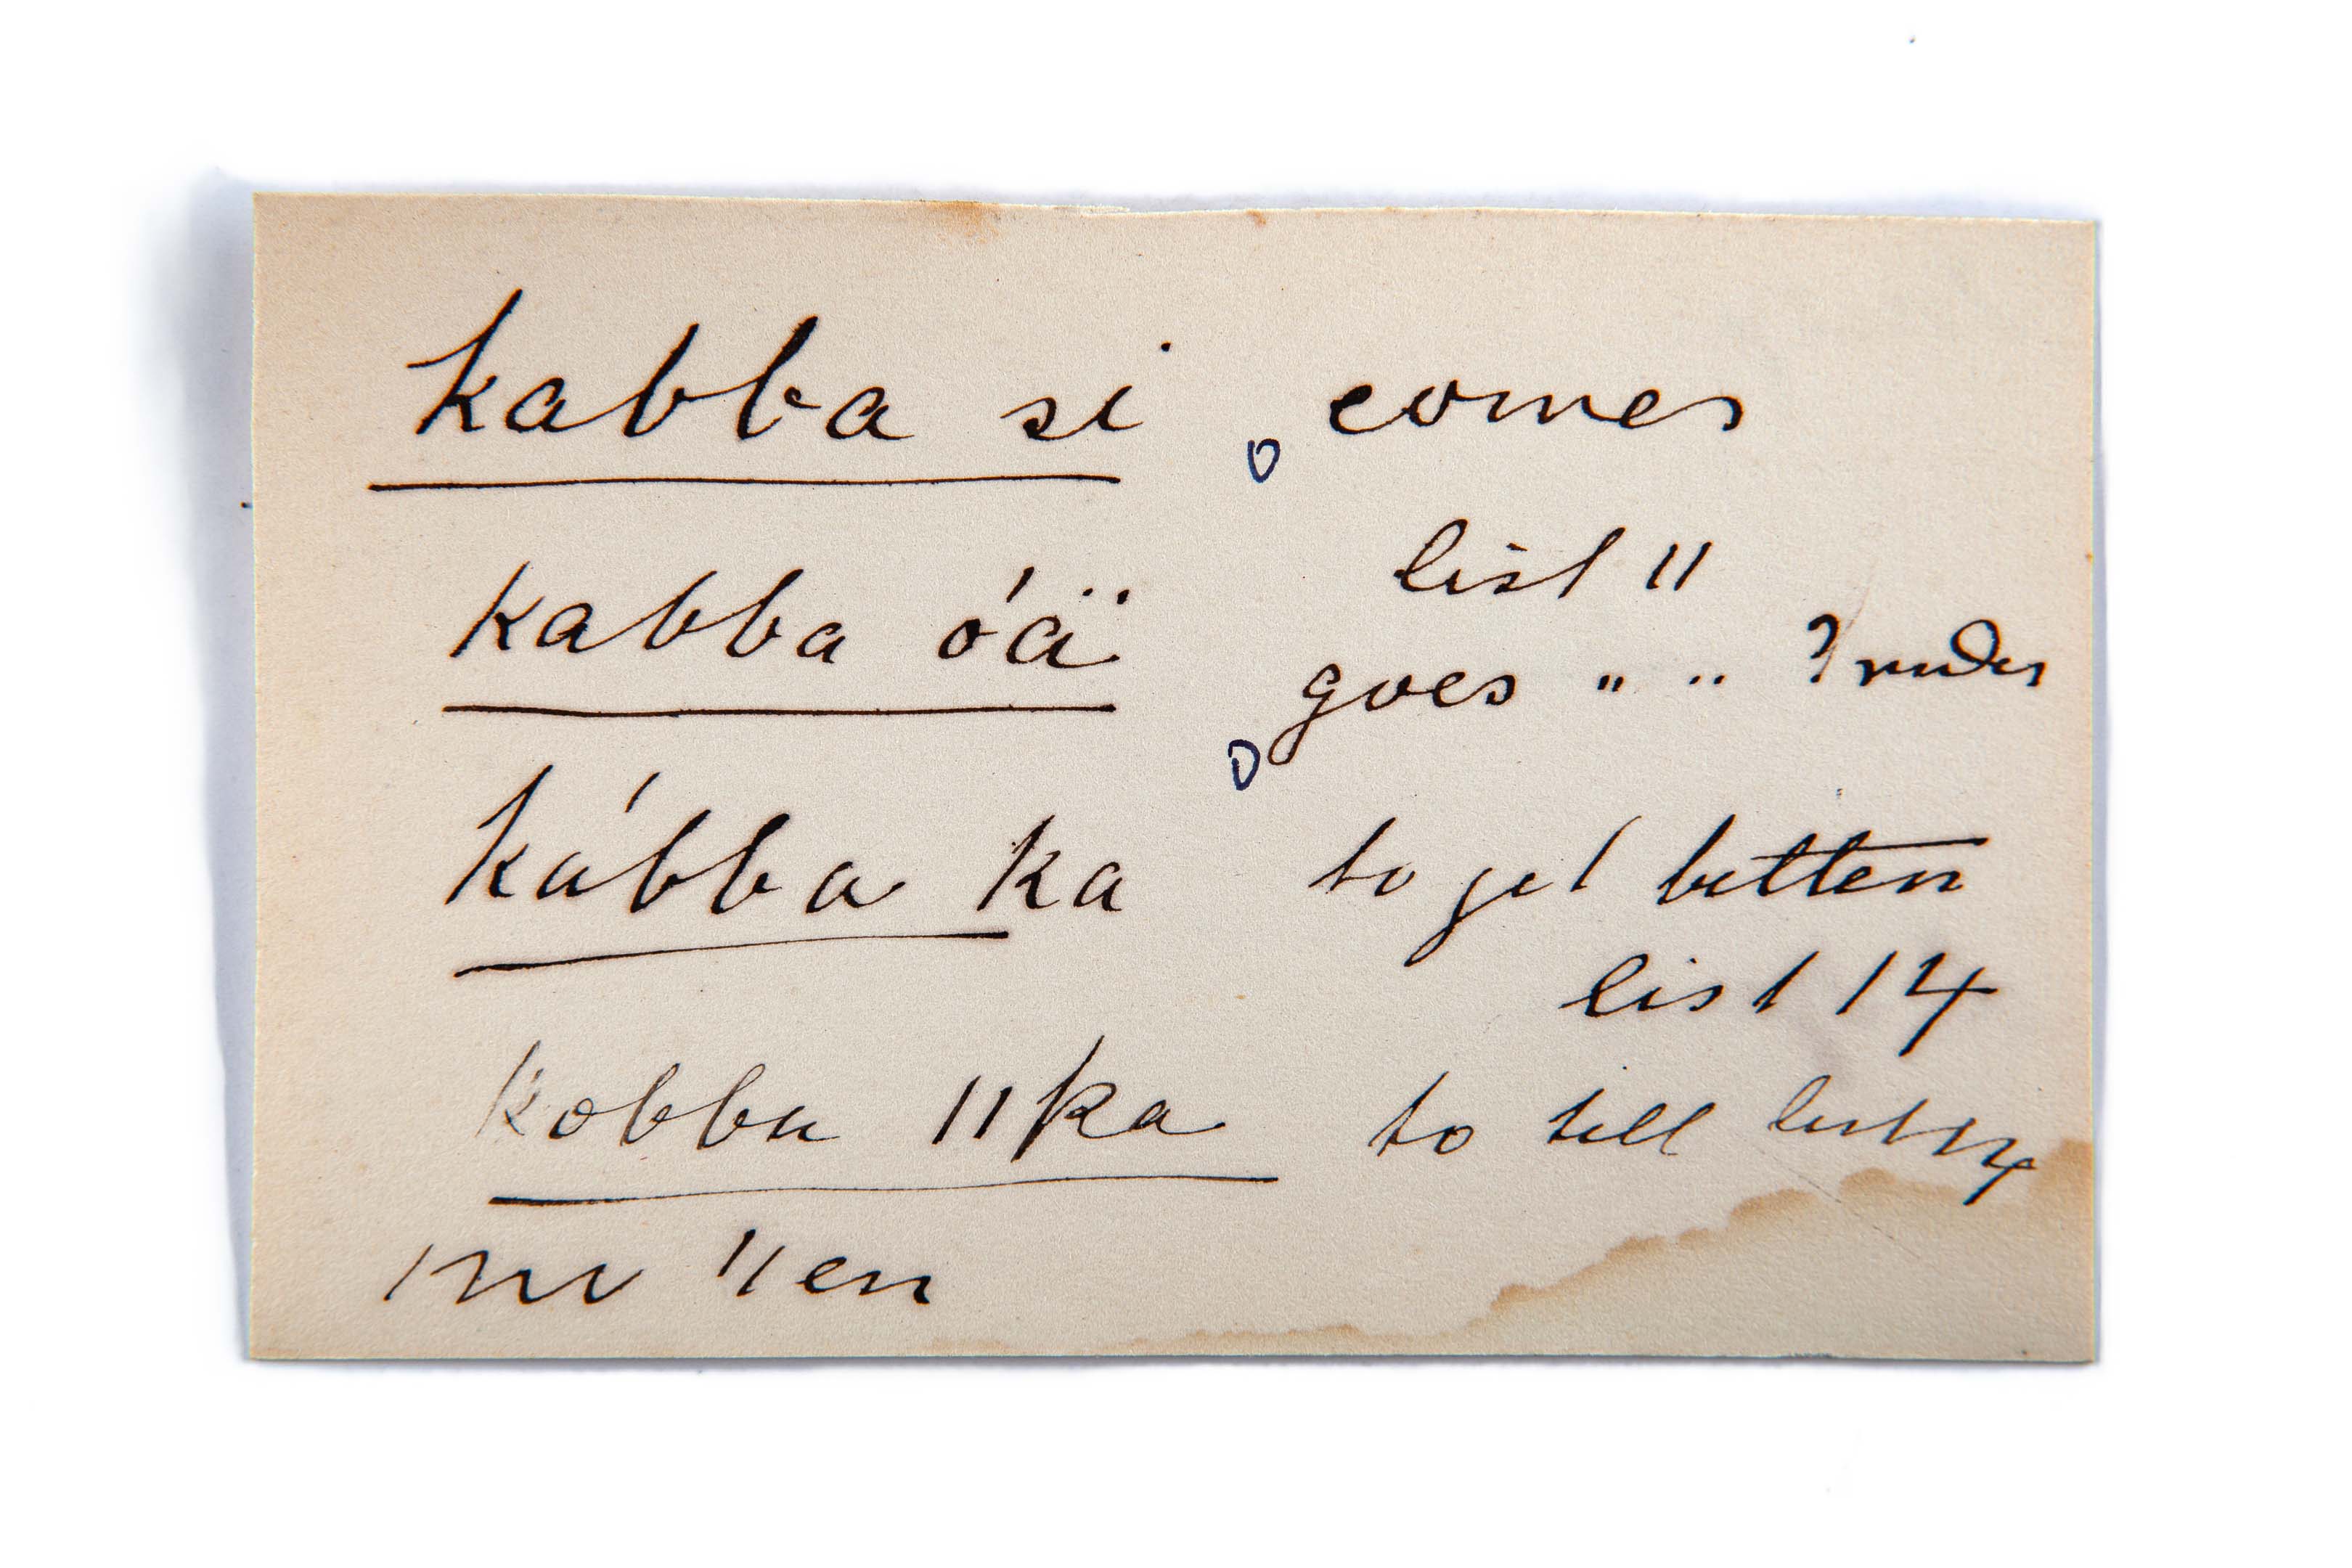 kabba si comes
list 11
kabba óä goes " " ?
kábba ka to get better
list 14
kobba ǁka to tell list 14
ǁen